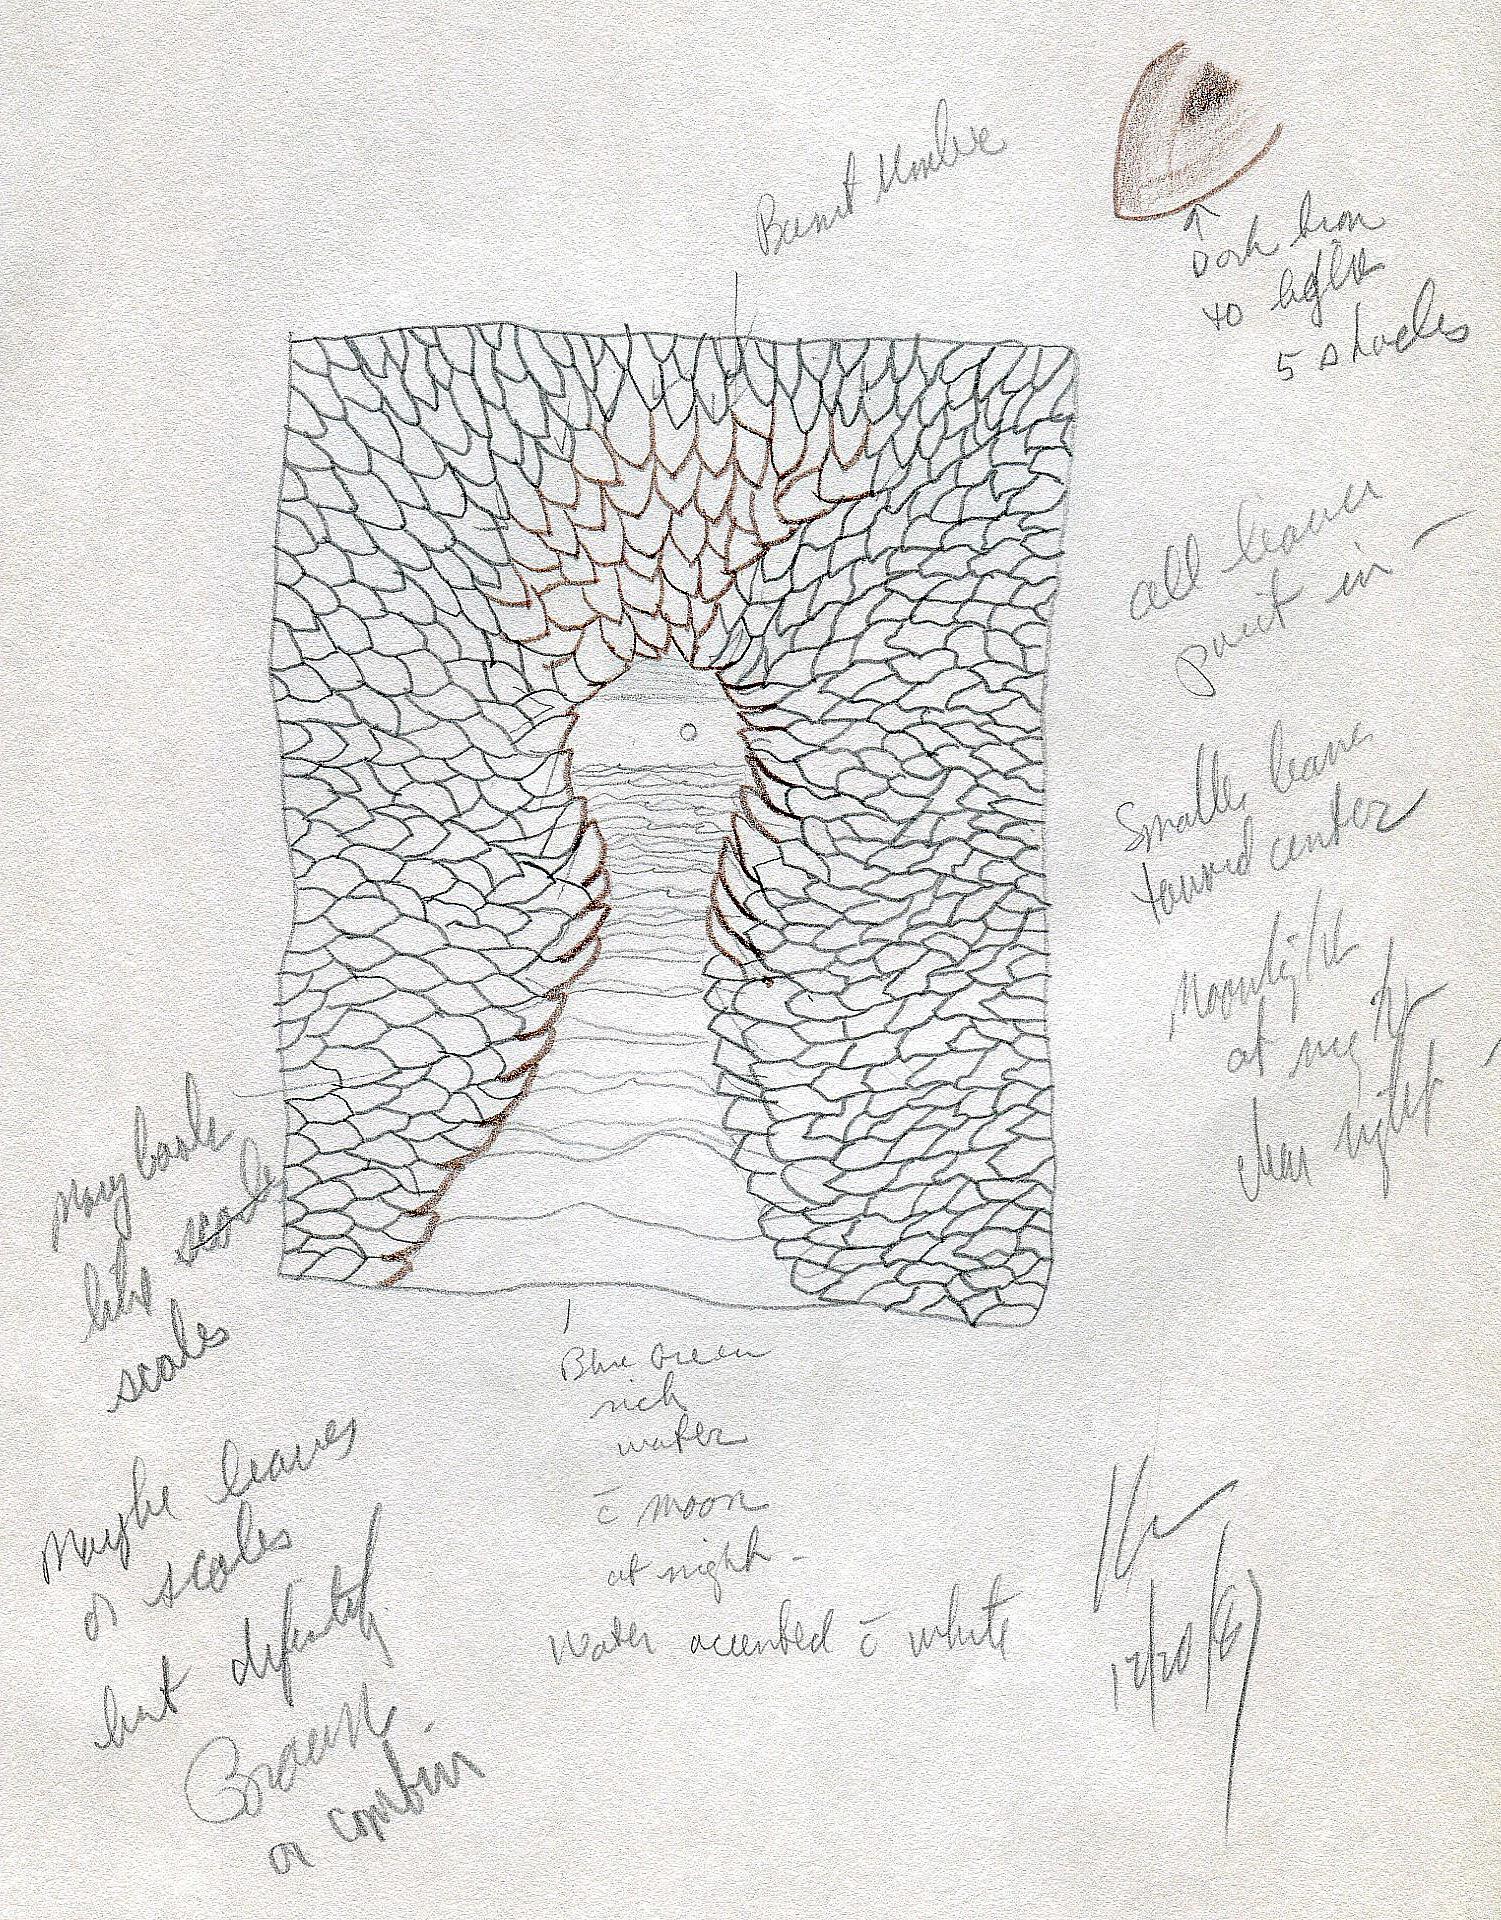 Burnt Umbre
Dark brown
to light
5 shades
all leaves
point in
Smaller leaves
toward center
Moonlight
at night
clear night
May look
like scale
scales
Maybe leaves
or scales
but definitely
Brown
or combin
Blue Green
rich
water
c̄ moon
at night -
Water accented c̄ white
12/20/87